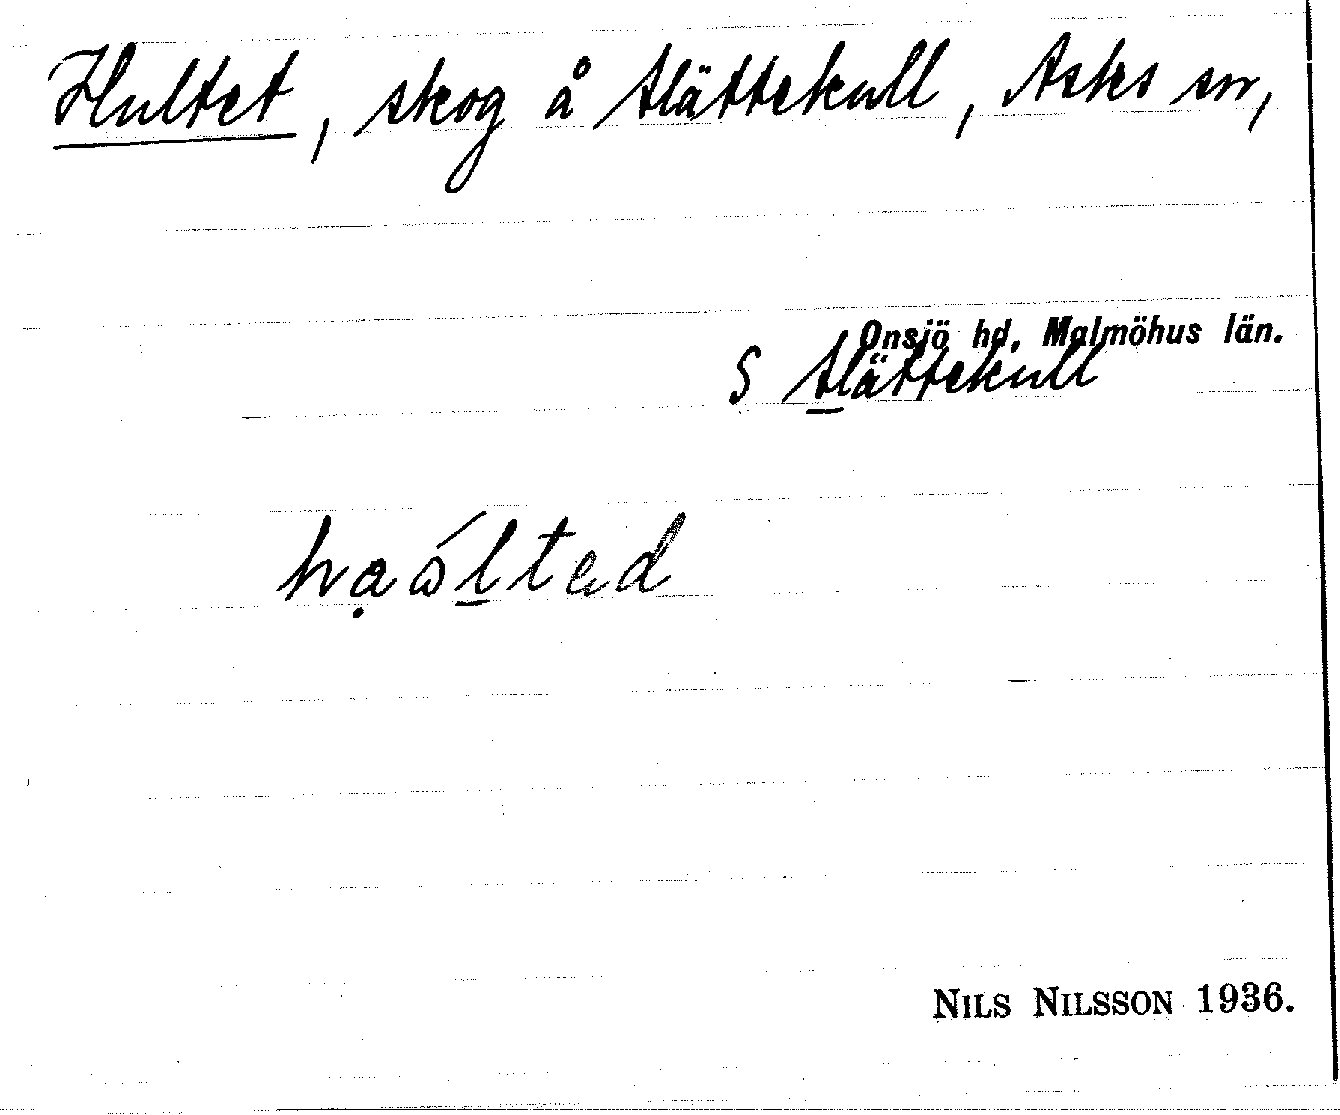 Hultet, skog å Slättekull, Asks sn,
Onsjö hd, Malmöhus län.
S Slättekull
NILS NILSSON 1936.